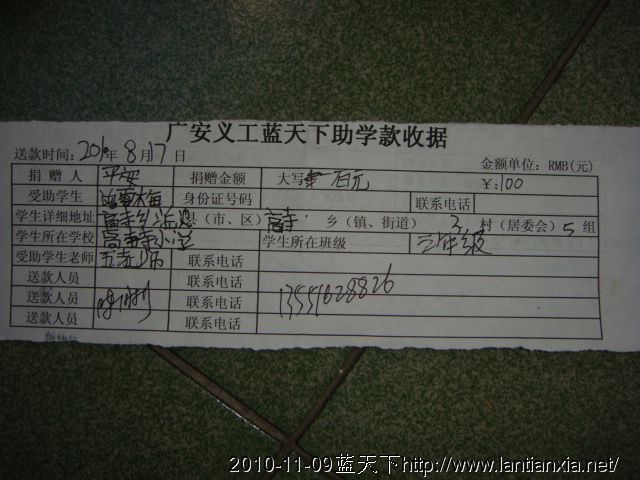 广安义工蓝天下助学款收据
送款时间：2010年8月17日 金额单位：RMB(元)
捐赠人 平安 捐赠金额 大写 壹百元 ¥:100
受助学生 身份证号码 联系电话
学生详细地址 县（市、区） 高寺 乡（镇、街道） 3 村（居委会） 5 组
学生所在学校 高寺小学 学生所在班级 三年级
受助学生老师 联系电话
送款人员 联系电话
送款人员 联系电话 13551628826
送款人员 联系电话
2010-11-09蓝天下http://www.lantianxia.net/